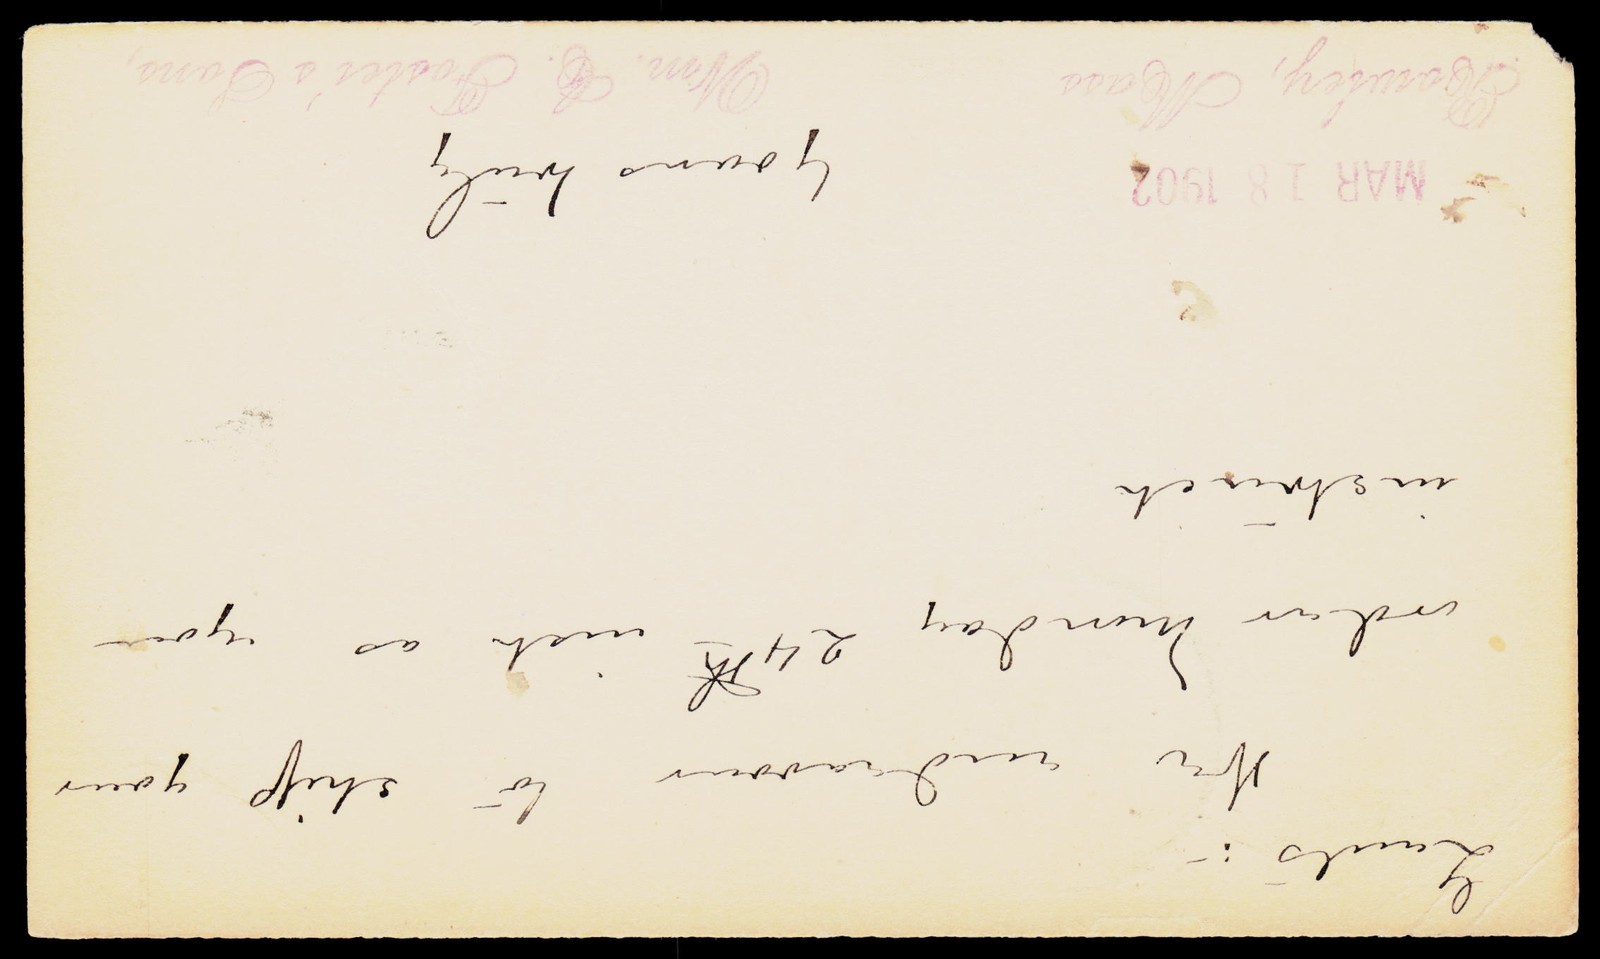 Gents :-
We endeavour to ship your
order Monday 24th inst as you
instruct
MAR 18 1902 Yours truly
Rowley, Mass Wm. C. Foster's Sons,